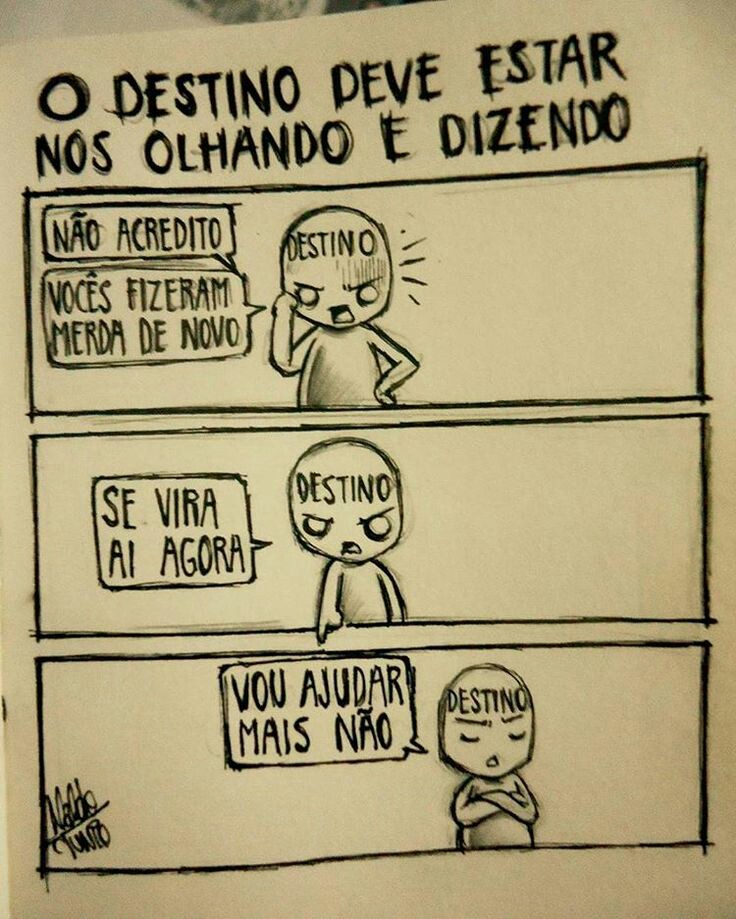 O DESTINO DEVE ESTAR
NOS OLHANDO E DIZENDO
NÃO ACREDITO
DESTINO
VOCÊS FIZERAM
MERDA DE NOVO
DESTINO
SE VIRA
AI AGORA
VOU AJUDAR
MAIS NÃO
DESTINO